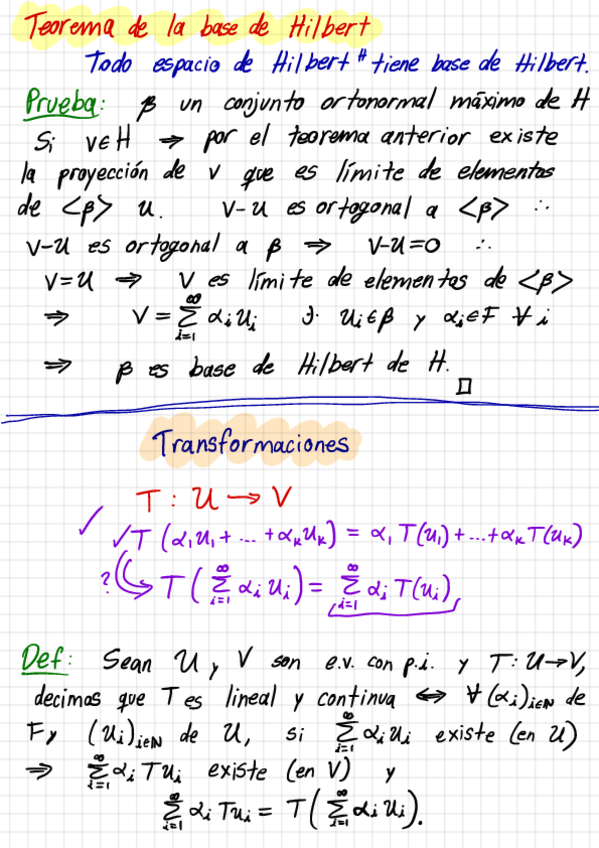 Teorema de la base de Hilbert
Todo espacio de Hilbert H tiene base de Hilbert.
Prueba: β un conjunto ortonormal máximo de H
Si v∈H ⇒ por el teorema anterior existe
la proyección de v que es límite de elementos
de <β> u. v-u es ortogonal a <β> ∴
v-u es ortogonal a β ⇒ v-u=0 ∴
v=u ⇒ v es límite de elementos de <β>
⇒ v = ∑_{i=1}^{∞} α_i u_i ∋· u_i∈β y α_i∈F ∀ i
⇒ β es base de Hilbert de H.
□
Transformaciones
T : U → V
✓ ✓ T (α_1 u_1 + ... + α_k u_k) = α_1 T(u_1) + ... + α_k T(u_k)
? ↪ T ( ∑_{i=1}^{∞} α_i u_i ) = ∑_{i=1}^{∞} α_i T(u_i)
Def: Sean U y V son e.v. con p.i. y T: U→V,
decimos que T es lineal y continua ⇔ ∀ (α_i)_{i∈N} de
F y (u_i)_{i∈N} de U, si ∑_{i=1}^{∞} α_i u_i existe (en U)
⇒ ∑_{i=1}^{∞} α_i Tu_i existe (en V) y
∑_{i=1}^{∞} α_i Tu_i = T ( ∑_{i=1}^{∞} α_i u_i ).